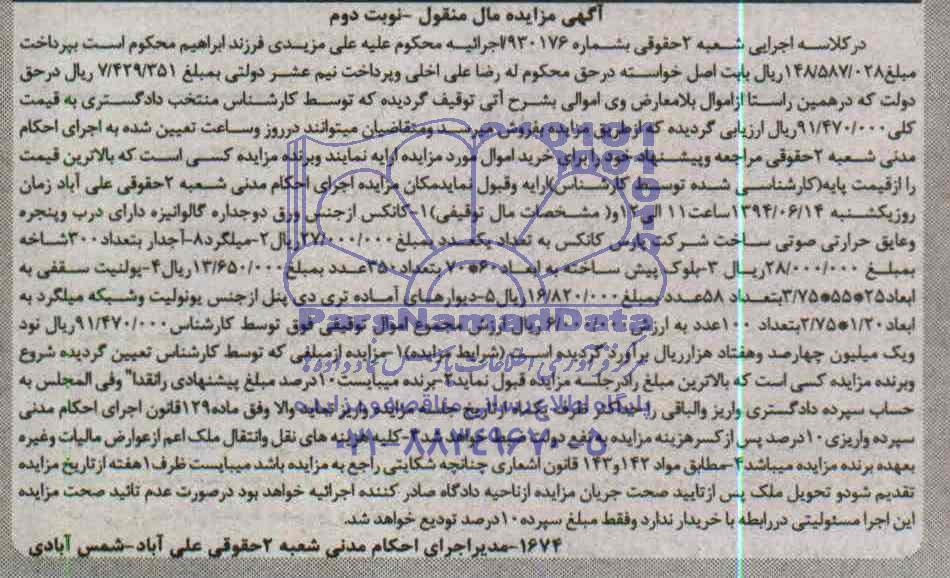 آگهی مزایده مال منقول -نوبت دوم
درکلاسه اجرایی شعبه ۲حقوقی بشماره ۹۳۰۱۷۶/اجرائیه محکوم علیه علی مزیدی فرزند ابراهیم محکوم است بپرداخت
مبلغ۱۴۸/۵۸۷/۰۲۸ریال بابت اصل خواسته درحق محکوم له رضا علی اخلی وپرداخت نیم عشر دولتی بمبلغ ۷/۴۲۹/۳۵۱ ریال درحق
دولت که درهمین راستا ازاموال بلامعارض وی اموالی بشرح آتی توقیف گردیده که توسط کارشناس منتخب دادگستری به قیمت
کلی۹۱/۴۷۰/۰۰۰ریال ارزیابی گردیده که ازطریق مزایده بفروش میرسد ومتقاضیان میتوانند درروز وساعت تعیین شده به اجرای احکام
مدنی شعبه ۲حقوقی مراجعه وپیشنهاد خود را برای خرید اموال مورد مزایده ارایه نمایند وبرنده مزایده کسی است که بالاترین قیمت
را ازقیمت پایه(کارشناسی شده توسط کارشناس)ارایه وقبول نمایدمکان مزایده اجرای احکام مدنی شعبه ۲حقوقی علی آباد زمان
روزیکشنبه ۱۳۹۴/۰۶/۱۴ساعت۱۱ الی۱۲و( مشخصات مال توقیفی)۱-کانکس ازجنس ورق دوجداره گالوانیزه دارای درب وپنجره
وعایق حرارتی صوتی ساخت شرکت پارس کانکس به تعداد یکعدد بمبلغ۲۷/۰۰۰/۰۰۰ریال۲-میلگرد۸-آجدار بتعداد۳۰۰شاخه
بمبلغ ۲۸/۰۰۰/۰۰۰ریال ۳-بلوک پیش ساخته به ابعاد۶۰*۷۰ بتعداد۳۵۰عدد بمبلغ۱۳/۶۵۰/۰۰۰ریال۴-یولنیت سقفی به
ابعاد۲۵*۵۵*۳/۷۵بتعداد ۵۸عدد بمبلغ۱۶/۸۲۰/۰۰۰ریال۵-دیوارهای آماده تری دی پنل ازجنس یونولیت وشبکه میلگرد به
ابعاد۱/۲۰*۲/۷۵بتعداد ۱۰۰عدد به ارزش ۶/۰۰۰/۰۰۰ریال ارزش مجموع اموال توقیفی فوق توسط کارشناس۹۱/۴۷۰/۰۰۰ریال نود
ویک میلیون چهارصد وهفتاد هزارریال برآورد گردیده است (شرایط مزایده)۱-مزایده ازمبلغی که توسط کارشناس تعیین گردیده شروع
وبرنده مزایده کسی است که بالاترین مبلغ رادرجلسه مزایده قبول نماید۲-برنده میبایست۱۰درصد مبلغ پیشنهادی رانقدا" وفی المجلس به
حساب سپرده دادگستری واریز والباقی را حداکثر ظرف یکماه ازتاریخ جلسه مزایده واریز نماید والا وفق ماده۱۲۹قانون اجرای احکام مدنی
سپرده واریزی۱۰درصد پس ازکسرهزینه مزایده به نفع دولت ضبط خواهد شد۳-کلیه هزینه های نقل وانتقال ملک اعم ازعوارض مالیات وغیره
بعهده برنده مزایده میباشد۴-مطابق مواد ۱۴۲و۱۴۳ قانون اشعاری چنانچه شکایتی راجع به مزایده باشد میبایست ظرف۱هفته ازتاریخ مزایده
تقدیم شودو تحویل ملک پس ازتایید صحت جریان مزایده ازناحیه دادگاه صادر کننده اجرائیه خواهد بود درصورت عدم تائید صحت مزایده
این اجرا مسئولیتی دررابطه با خریدار ندارد وفقط مبلغ سپرده۱۰درصد تودیع خواهد شد.
۱۶۷۴-مدیراجرای احکام مدنی شعبه ۲حقوقی علی آباد-شمس آبادی
ParsNamadData
پایگاه اطلاع رسانی مناقصه و مزایده
۰۲۱-۸۸۳۴۹۶۷۰-۵